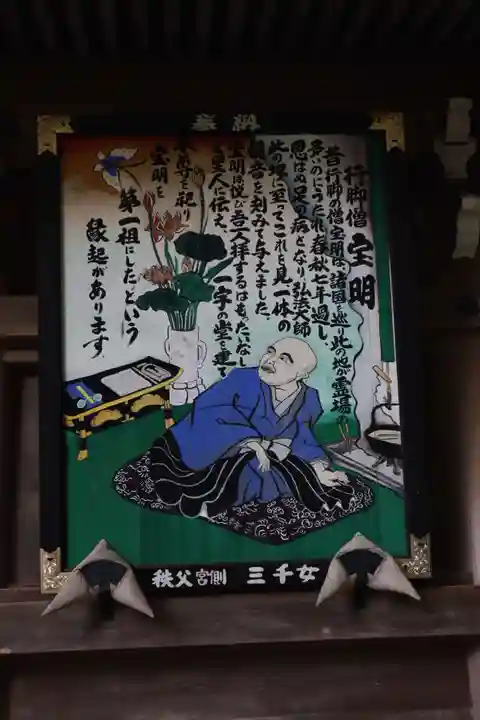 奉納
行脚僧 宝明
昔行脚の僧宝明は、諸国を巡り此の地が霊場の
多いのにうたれ春秋七年過し、
思はぬ足の病となり弘法大師
此の場に至ってこれを見一体の
観音を刻みて与えました。
宝明は悦び吾一人拝するはもったいなし
と里人に伝え、一宇の堂を建て
本尊を祀り
宝明を
第一祖にしたという
縁起があります
秩父宮側 三千女